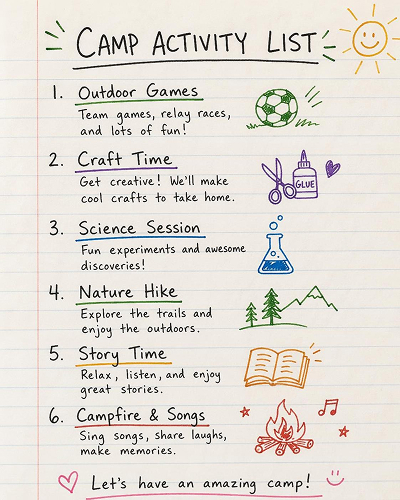 CAMP ACTIVITY LIST
1. Outdoor Games
Team games, relay races,
and lots of fun!
2. Craft Time
Get creative! We'll make
cool crafts to take home.
GLUE
3. Science Session
Fun experiments and awesome
discoveries!
4. Nature Hike
Explore the trails and
enjoy the outdoors.
5. Story Time
Relax, listen, and enjoy
great stories.
6. Campfire & Songs
Sing songs, share laughs,
make memories.
Let's have an amazing camp!